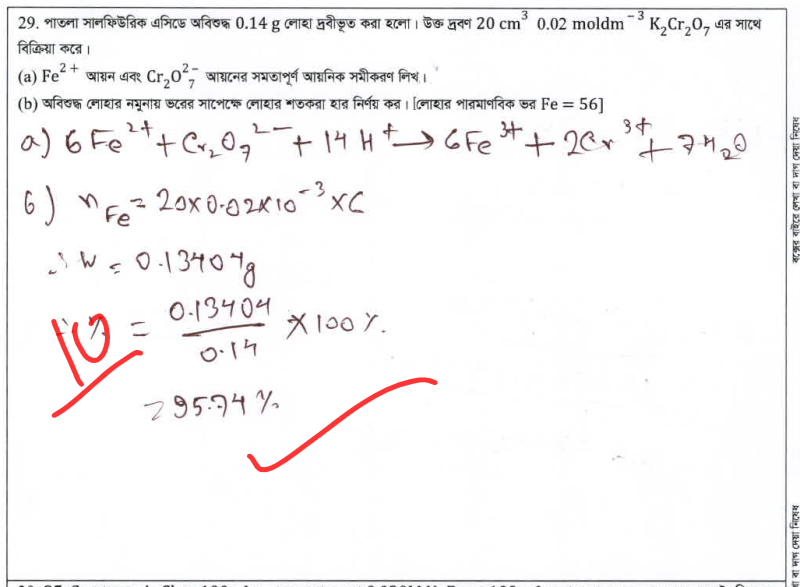 29. পাতলা সালফিউরিক এসিডে অবিশুদ্ধ 0.14 g লোহা দ্রবীভূত করা হলো। উক্ত দ্রবণ 20 cm³ 0.02 moldm⁻³ K₂Cr₂O₇ এর সাথে
বিক্রিয়া করে।
(a) Fe²⁺ আয়ন এবং Cr₂O₇²⁻ আয়নের সমতাপূর্ণ আয়নিক সমীকরণ লিখ।
(b) অবিশুদ্ধ লোহার নমুনায় ভরের সাপেক্ষে লোহার শতকরা হার নির্ণয় কর। [লোহার পারমাণবিক ভর Fe = 56]
a) 6Fe²⁺ + Cr₂O₇²⁻ + 14H⁺ → 6Fe³⁺ + 2Cr³⁺ + 7H₂O
b) n_Fe = 20×0.02×10⁻³×6
∴ W = 0.13404g
∴ % = 0.13404/0.14 × 100%
= 95.74%
10
বক্সের বাইরে লেখা বা দাগ দেয়া নিষেধ
বা দাগ দেয়া নিষেধ